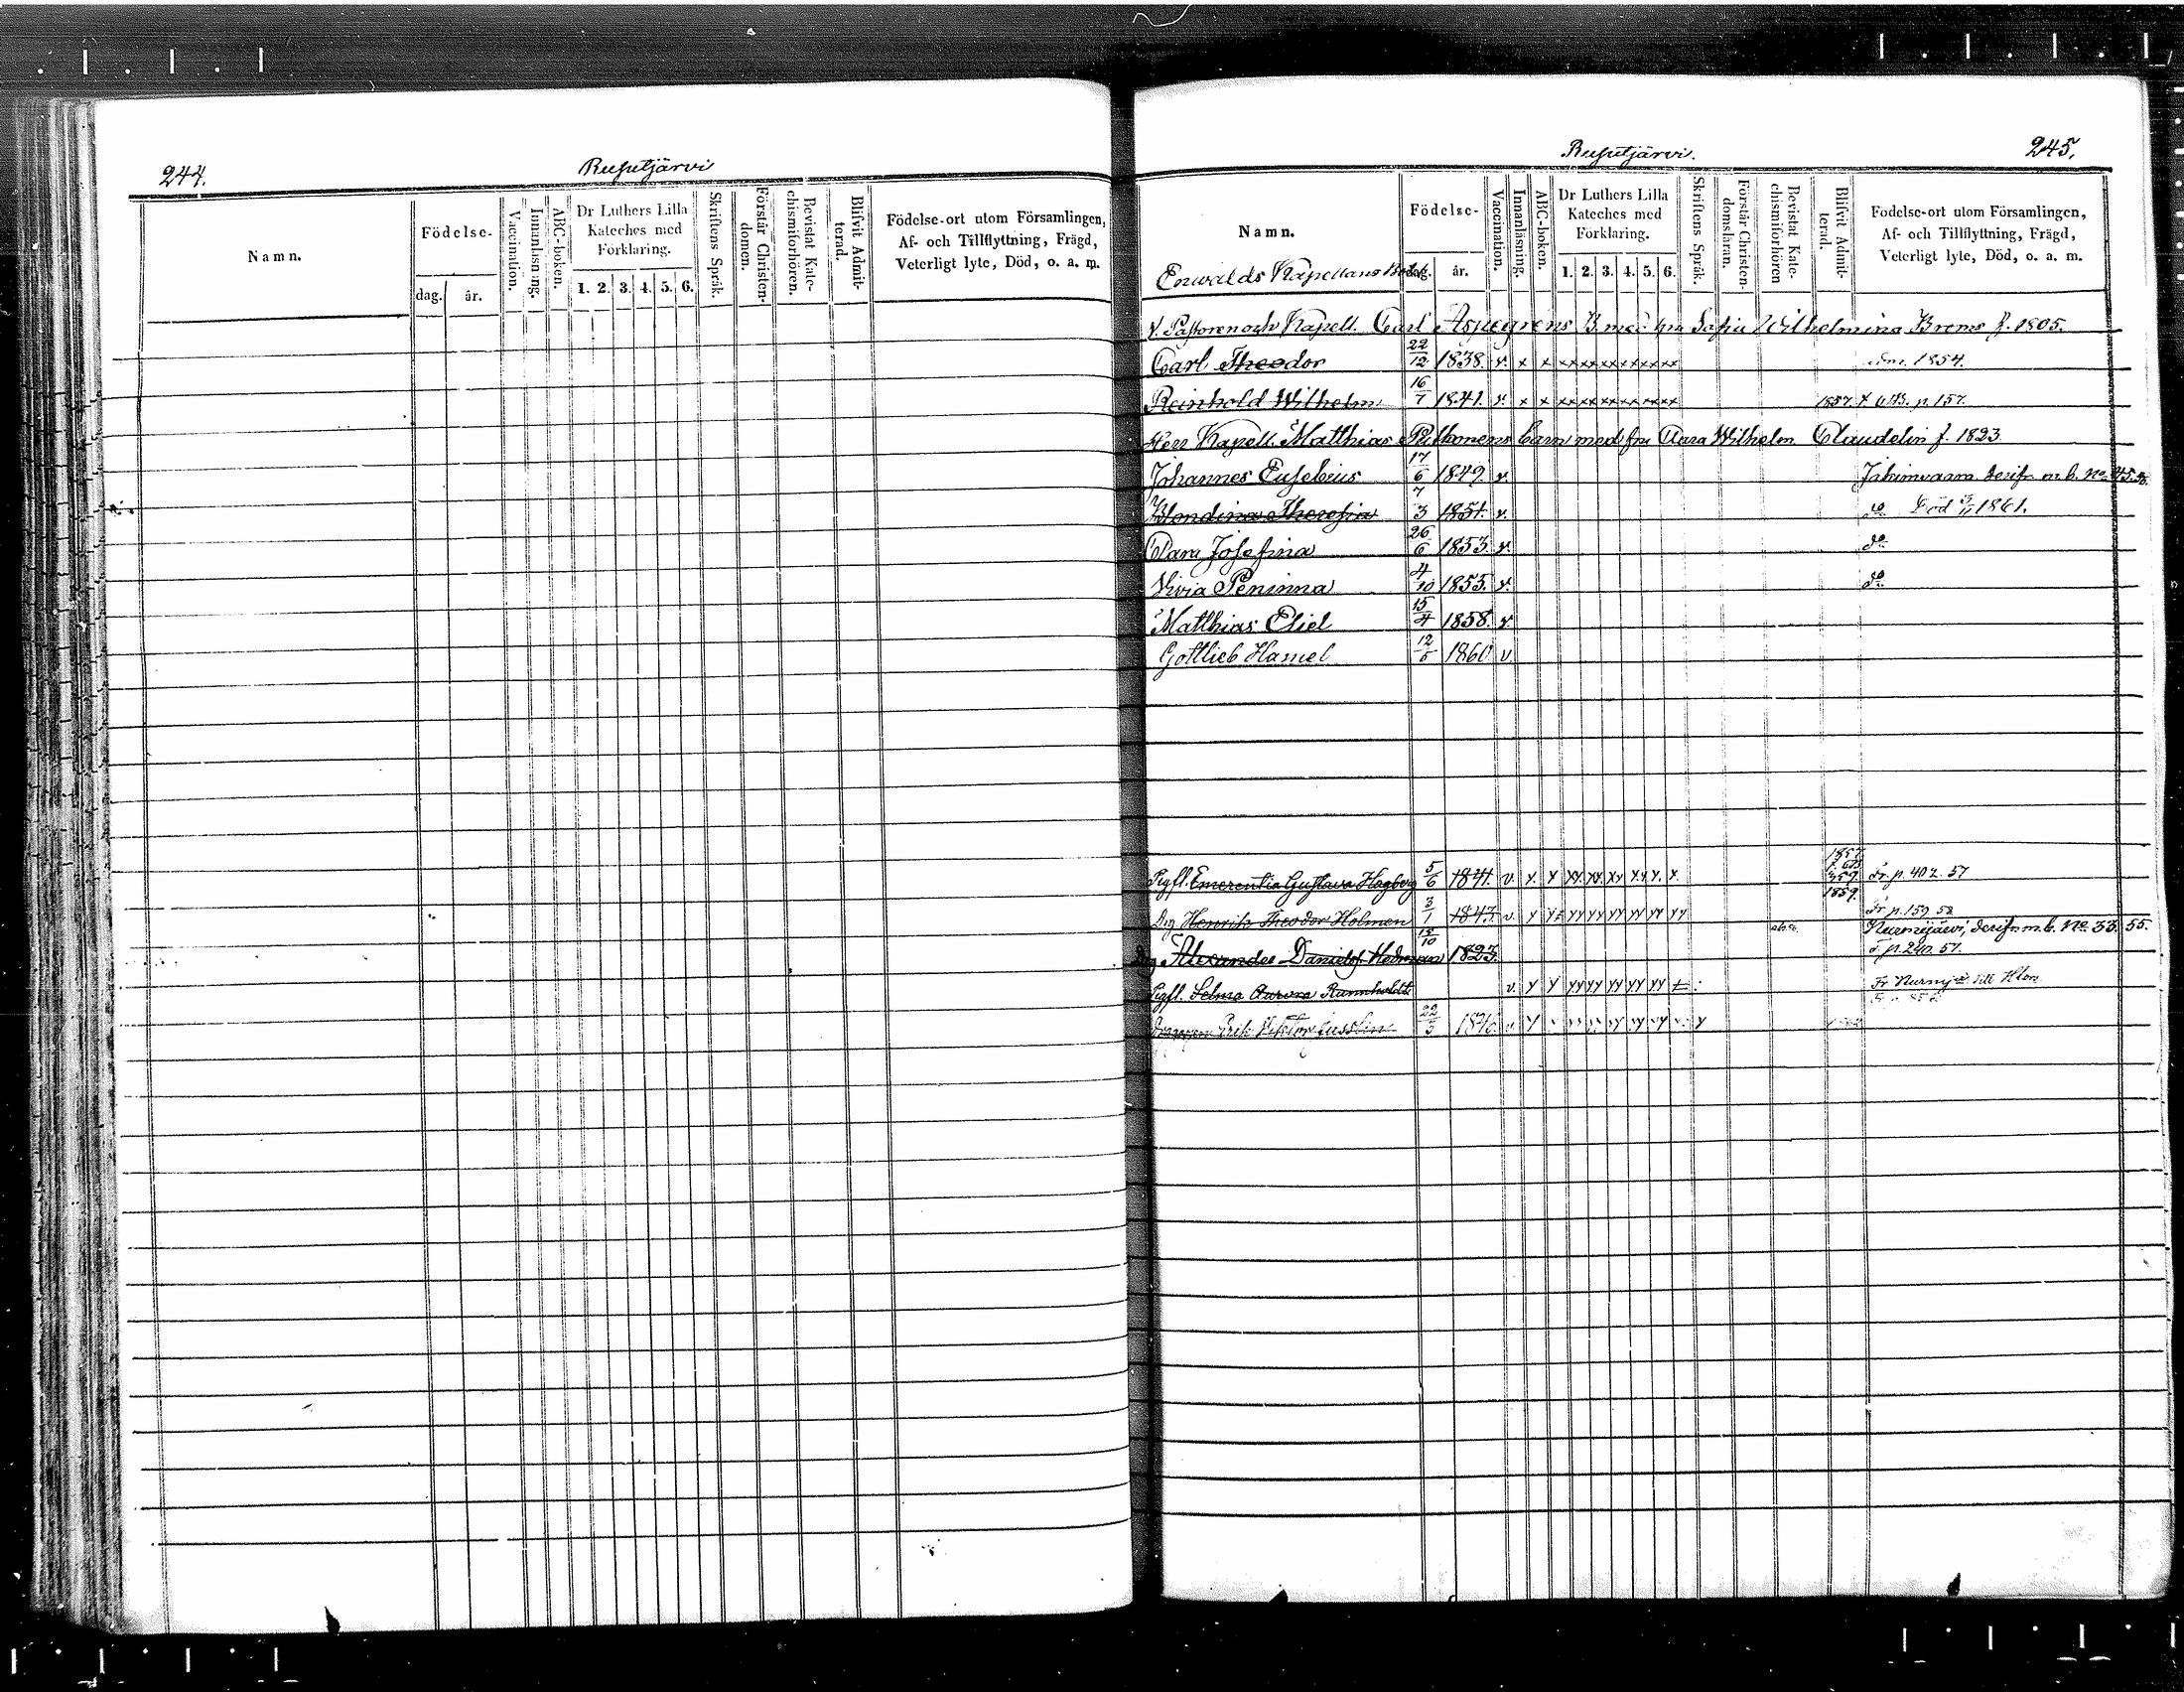 244.
Rusutjärvi
Namn.
Födelse-
dag. år.
Vaccination.
Innanläsning.
ABC-boken.
Dr Luthers Lilla
Kateches med
Förklaring.
1. 2. 3. 4. 5. 6.
Skriftens Språk.
Förstår Christen-
domen.
Bevistat Kate-
chismiförhören.
Blifvit Admit-
terad.
Födelse-ort utom Församlingen,
Af- och Tillflyttning, Frägd,
Veterligt lyte, Död, o. a. m.
Rusutjärvi.
245.
Namn.
Födelse-
år.
Vaccination.
Innanläsning.
ABC-boken.
Dr Luthers Lilla
Kateches med
Förklaring.
1. 2. 3. 4. 5. 6.
Skriftens Språk.
Förstår Christen-
domsläran.
Bevistat Kate-
chismiförhören
Blifvit Admit-
terad.
Födelse-ort utom Församlingen,
Af- och Tillflyttning, Frägd,
Veterligt lyte, Död, o. a. m.
Erwalds Kapellans
v. Pastoren och Kapell. Carl Aspegrens B. med fru Sofia Wilhelmina Brems f. 1805.
Carl Theodor 22/12 1838. v. x x xx xx xx xx xx xx 1854.
Reinhold Wilhelm 16/7 1841. v. x x xx xx xx xx xx xx 1857. p. 157.
Herr Kapell. Matthias Putkonens barn med fru Clara Wilhelm. Claudelin f. 1823
Johannes Eusebius 17/6 1849. v. Jakimvaara derifr. m. b. No 45.
Blondina Theresia 7/3 1851. v. do Död 1861.
Clara Josefina 26/6 1853. v. do
Livia Peninna 4/10 1855. v. do
Matthias Eliel 15/4 1858. v.
Gottlieb Hamel 12/5 1860 v.
Pigfl. Emerentia Gustava Hagberg 5/6 1841. v. x. x xx. xx. xx x.x. x. x. 1857 1859. fr. p. 402. 57
Drg Henrik Theodor Holmen 3/1 1847. v. fr p. 159 58
Drg Alexander Danielsf. Hedman 18/10 1823. Nurmijärvi, derifr m. b. No 33. 55.
p. 240. 57.
Pigfl. Selma Aurora Runnholdt v. Fr Nurmij till
Erik Viktor 22/5 1846.